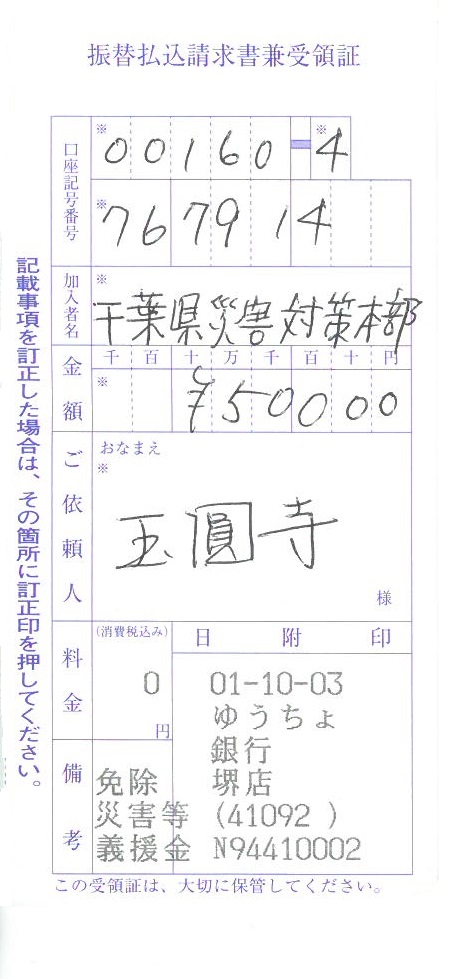 振替払込請求書兼受領証
口座記号番号
※ ※
00160-4
※
767914
加入者名
※
千葉県災害対策本部
金額
千百十万千百十円
※
¥500000
ご依頼人
おなまえ
※
玉圓寺
様
料金
(消費税込み)
0
円
日附印
01-10-03
ゆうちょ
銀行
堺店
(41092 )
N94410002
備考
免除
災害等
義援金
この受領証は、大切に保管してください。
記載事項を訂正した場合は、その箇所に訂正印を押してください。